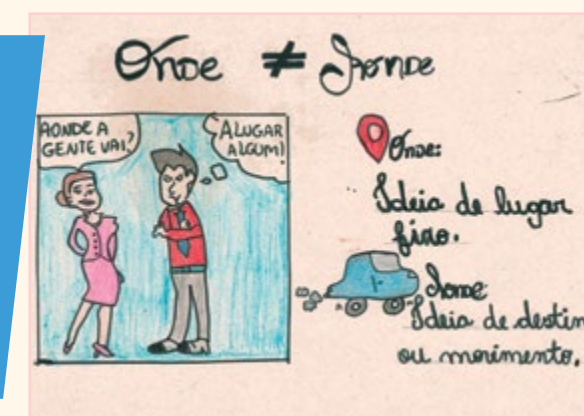 Onde ≠ Aonde
AONDE A
GENTE VAI?
A LUGAR
ALGUM!
Onde:
Ideia de lugar
fixo.
Aonde:
Ideia de destin
ou movimento.